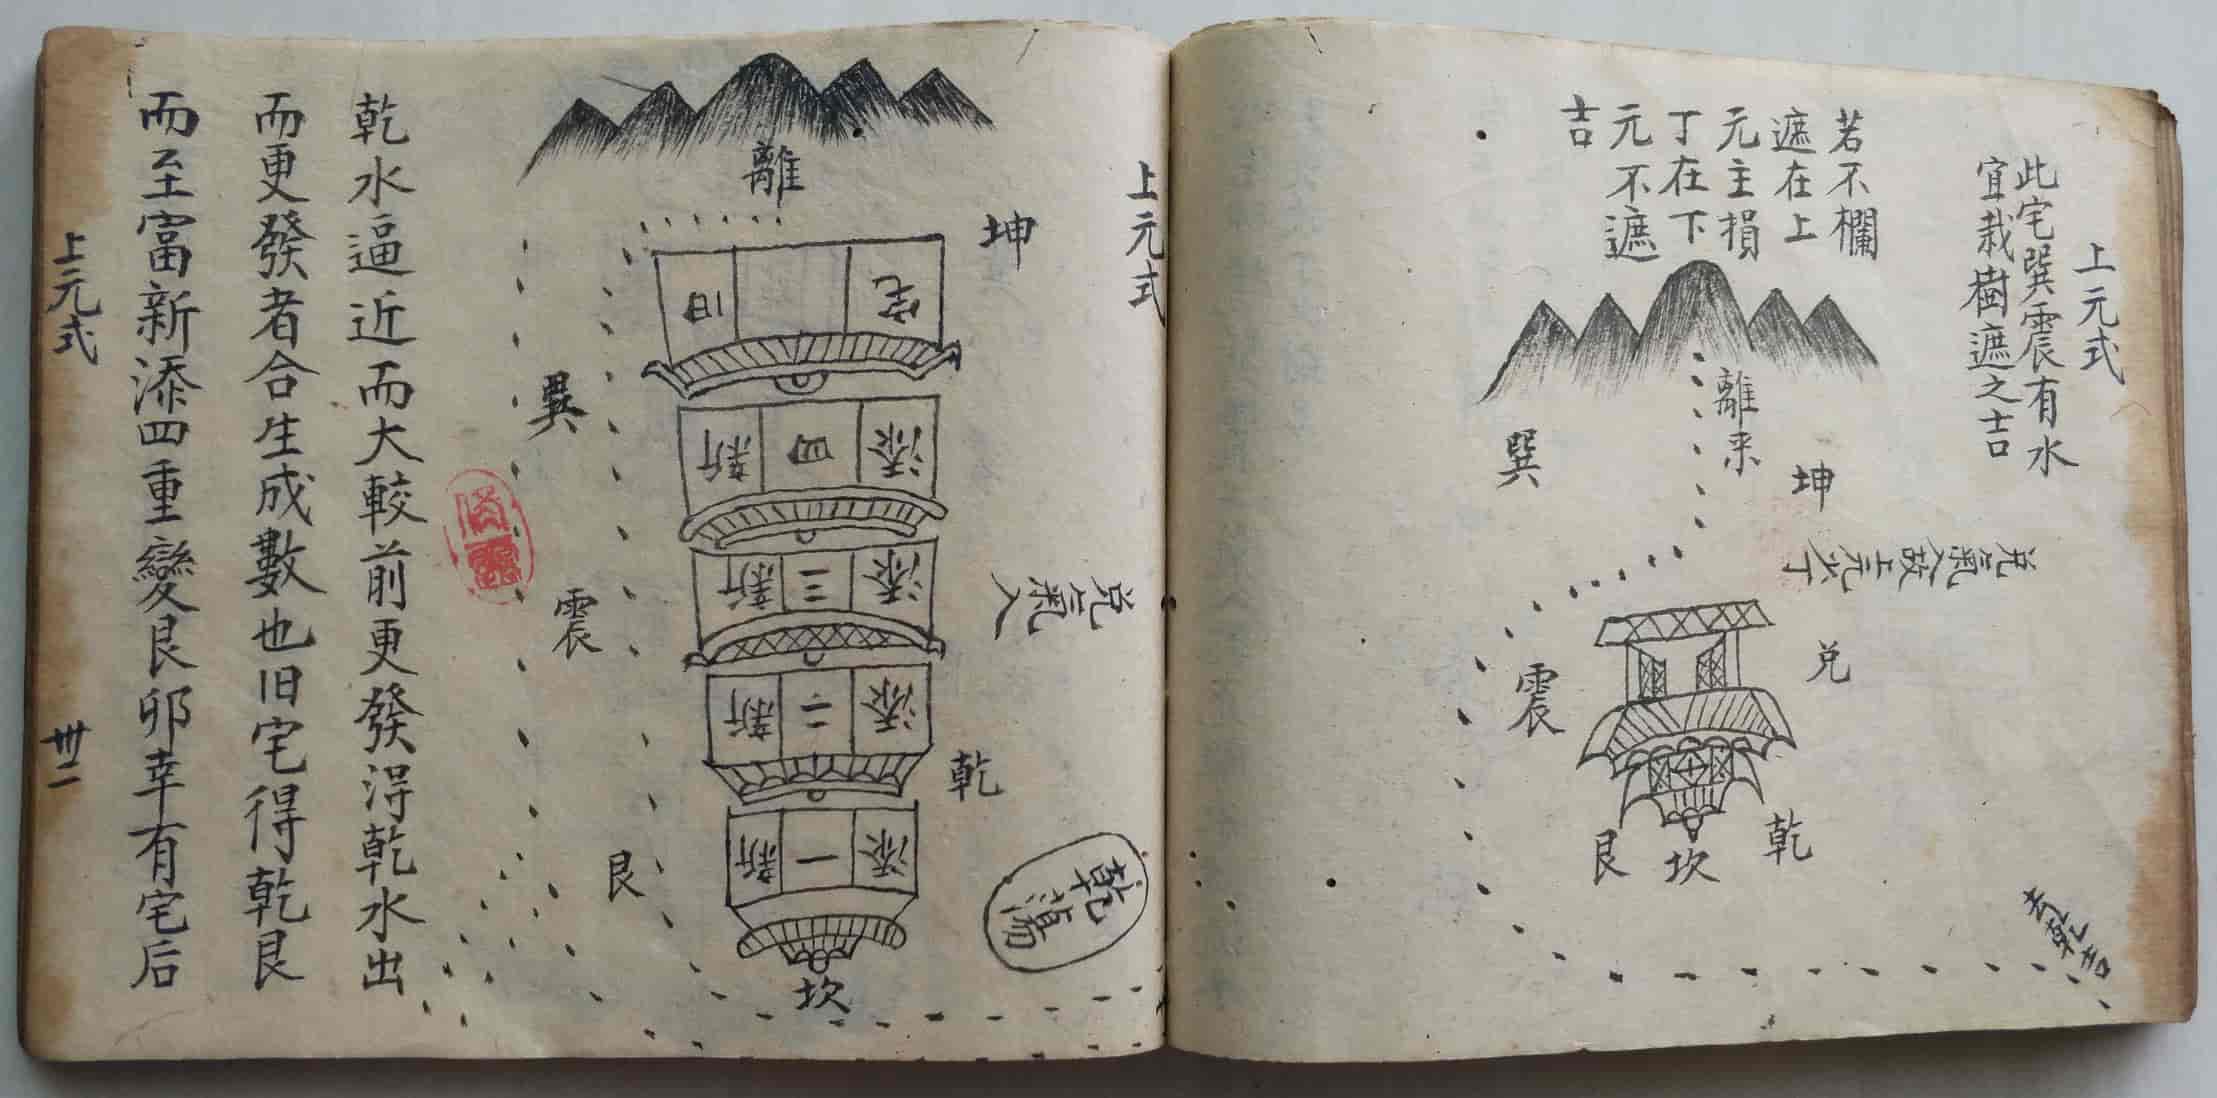 上元式
此宅巽震有水
宜栽樹遮之吉
若不欄
遮在上
元主損
丁在下
元不遮
吉
離来
巽
坤
兌氣入故上元少丁
兌
震
艮
坎
乾
去乾吉
上元式
離
坤
巽
旧宅
新四添
新三添
兌氣入
震
新二添
乾
新一添
艮
坎
乾水逼近而大較前更發得乾水出
而更發者合生成數也旧宅得乾艮
而至富新添四重變艮卯幸有宅后
上元式
卅二